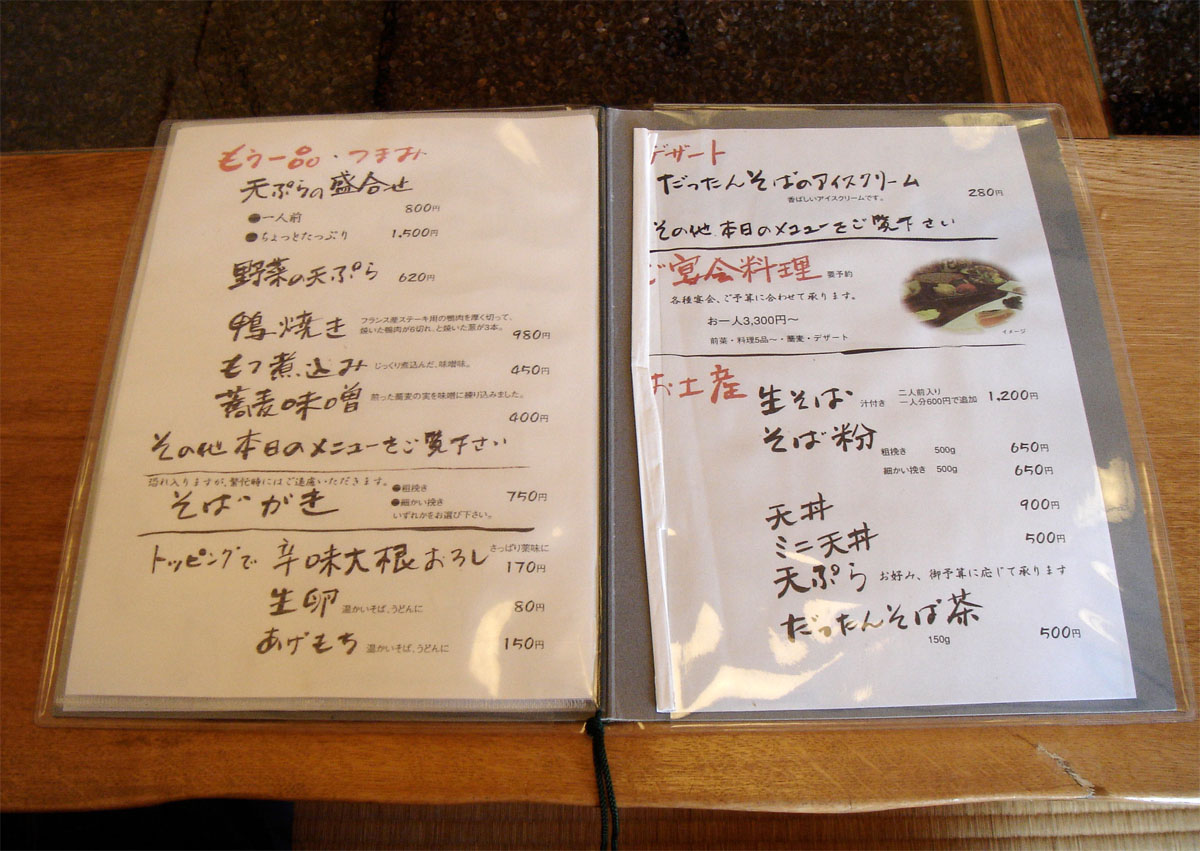 もう一品・つまみ
天ぷらの盛合せ
●一人前 800円
●ちょっとたっぷり 1,500円
野菜の天ぷら 620円
鴨焼き フランス産ステーキ用の鴨肉を厚く切って、
焼いた鴨肉が6切れ、と焼いた葱が3本。 980円
もつ煮込み じっくり煮込んだ、味噌味。 450円
蕎麦味噌 煎った蕎麦の実を味噌に練り込みました。
400円
その他本日のメニューをご覧下さい
恐れ入りますが、繁忙時にはご遠慮いただきます。
そばがき ●粗挽き
●細かい挽き 750円
いずれかをお選び下さい。
トッピングで 辛味大根おろし さっぱり薬味に
170円
生卵 温かいそば、うどんに 80円
あげもち 温かいそば、うどんに 150円
デザート
だったんそばのアイスクリーム 280円
香ばしいアイスクリームです。
その他本日のメニューをご覧下さい
ご宴会料理 要予約
各種宴会、ご予算に合わせて承ります。
お一人3,300円～
前菜・料理5品～・蕎麦・デザート
イメージ
お土産 生そば 汁付き 二人前入り
一人分600円で追加 1,200円
そば粉 粗挽き 500g 650円
細かい挽き 500g 650円
天丼 900円
ミニ天丼 500円
天ぷら お好み、御予算に応じて承ります
だったんそば茶
150g 500円